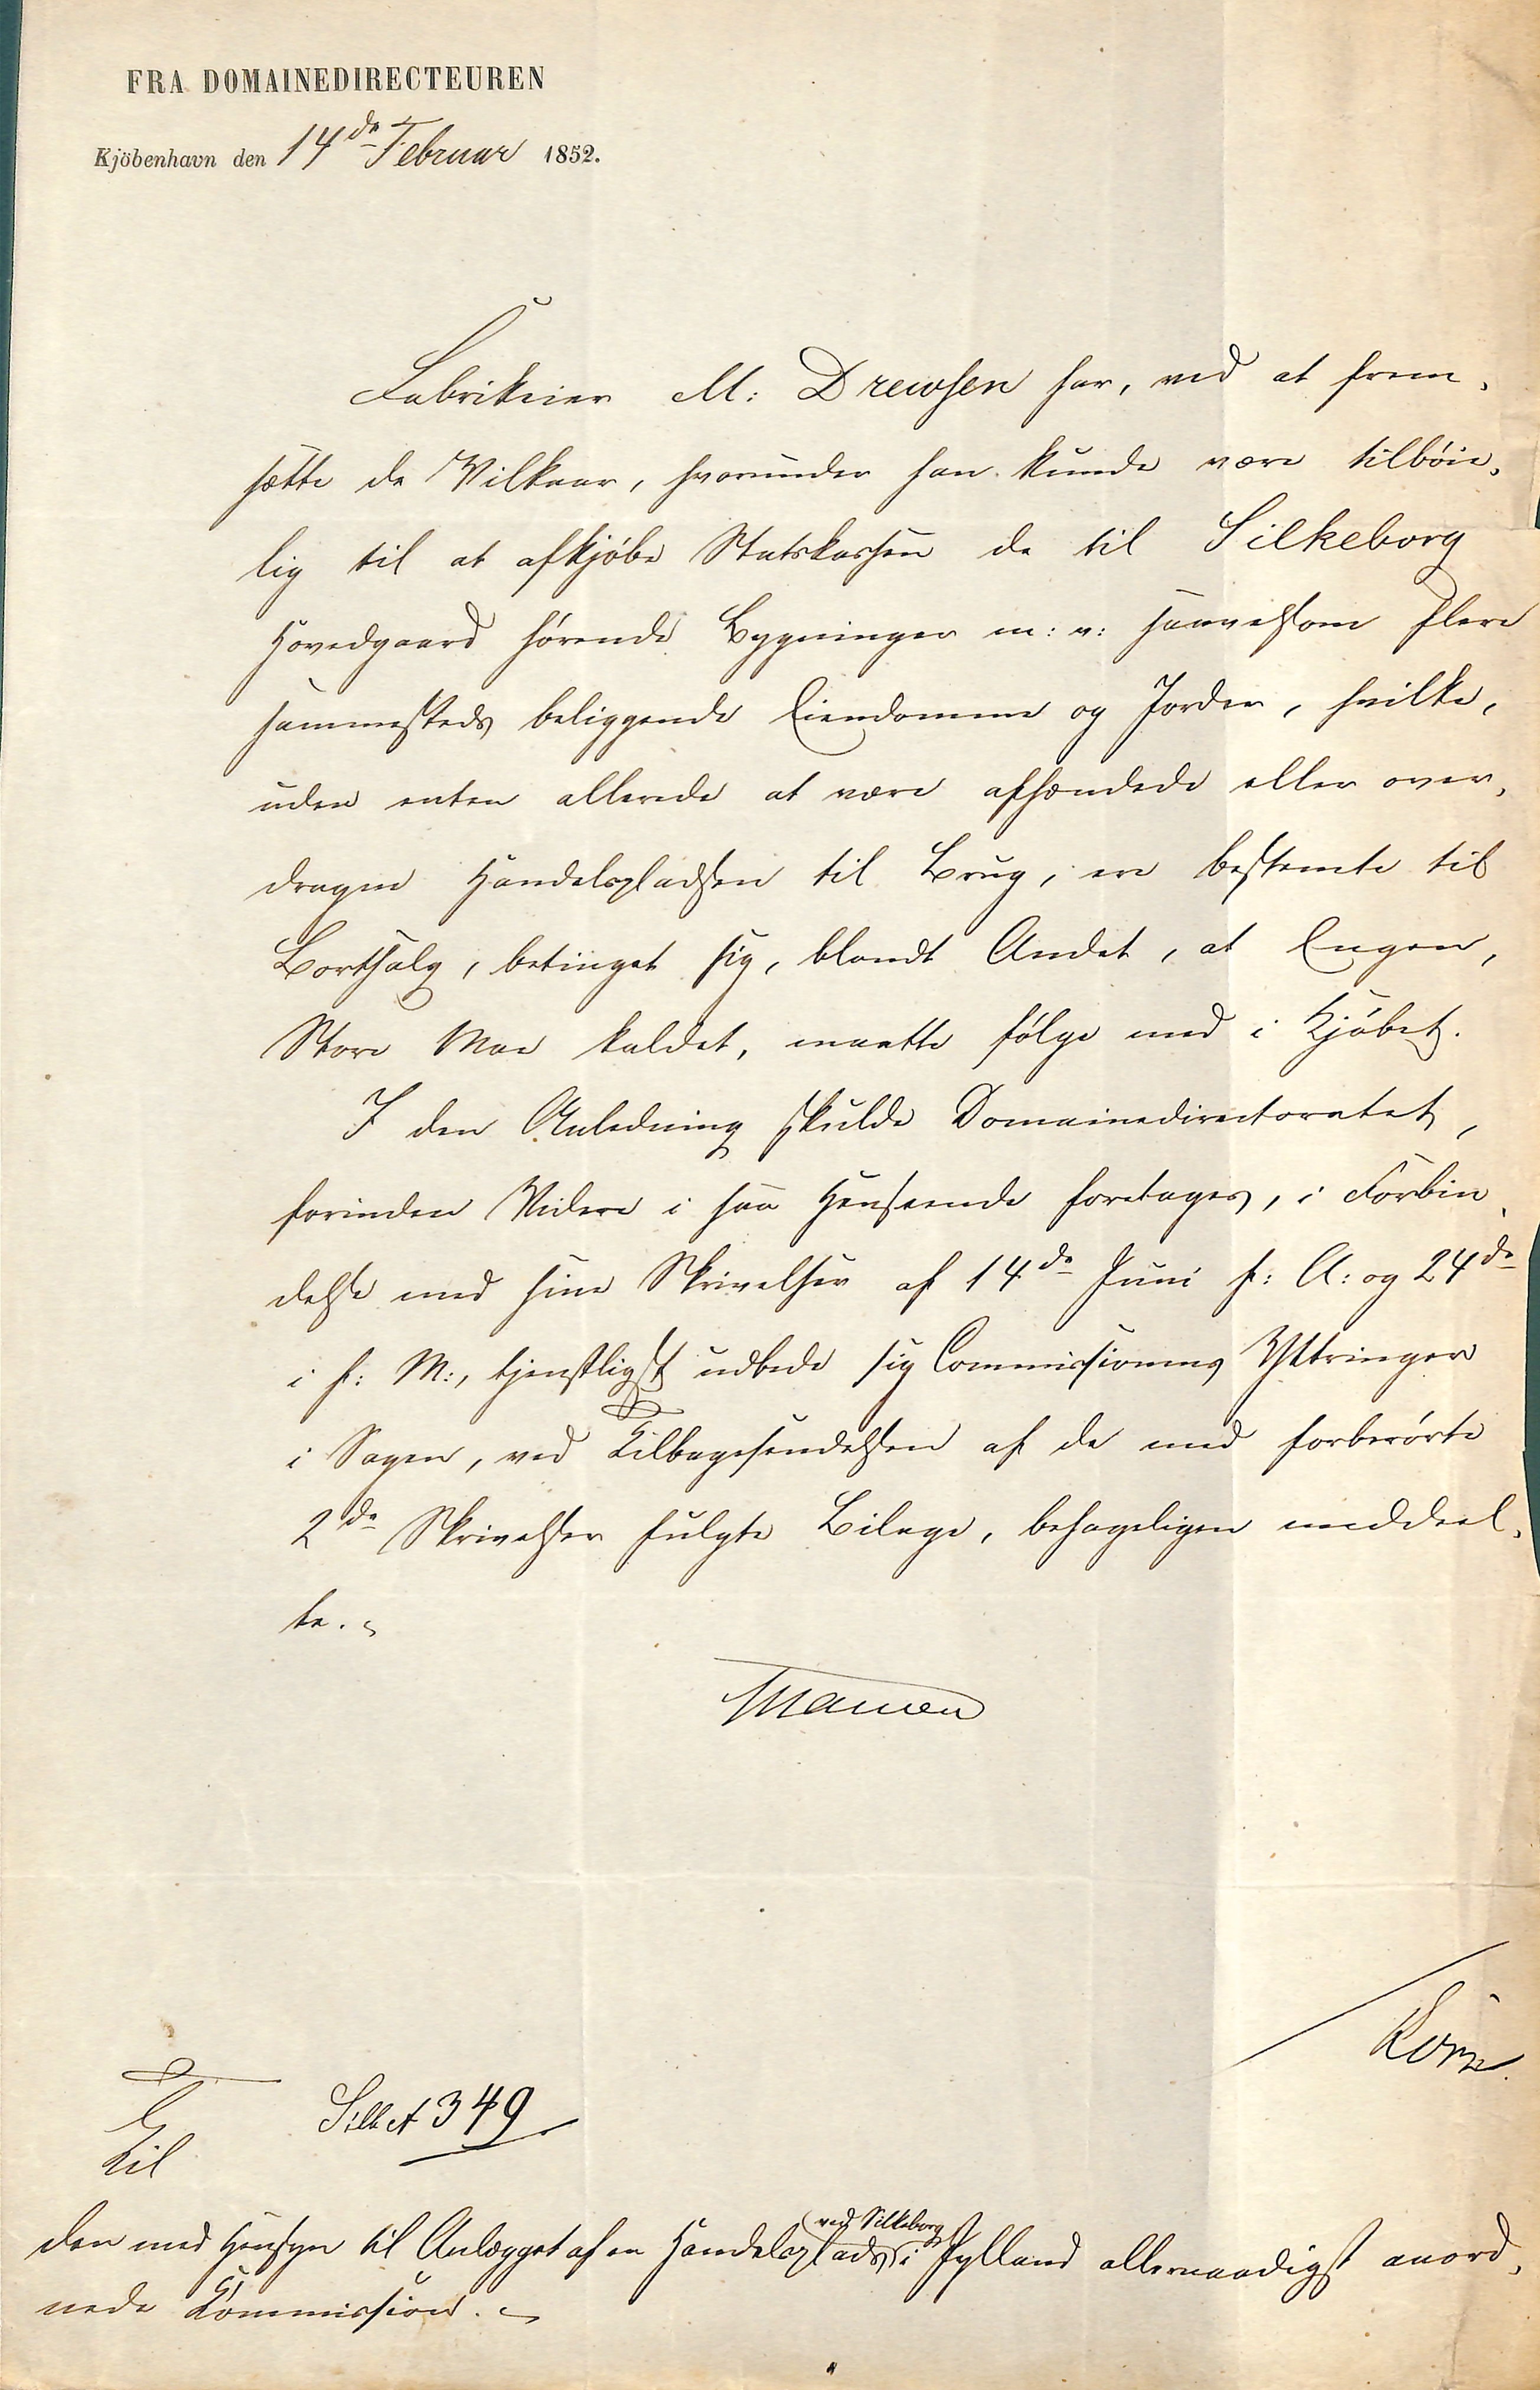 FRA DOMAINEDIRECTEUREN
Kjöbenhavn den 14de Februar 1852.
Fabrikeier M: Drewsen har, ved at frem-
sætte de Vilkaar, hvorunder han kunde være tilbøie-
lig til at afkjøbe Statskassen de til Silkeborg
Hovedgaard hørende Bygninger m: v: saavelsom flere
sammesteds beliggende Eiendomme og Jorder, hvilke,
uden enten allerede at være afhændede eller over-
dragne Handelspladsen til Brug, ere bestemte til
Bortsalg, betinget sig, blandt Andet, at Engen,
Store Mae kaldet, maatte følge med i Kjøbet.
I den Anledning skulde Domainedirectoratet,
forinden Videre i saa Henseende foretages, i Forbin-
delse med sine Skrivelser af 14de Juni f: A: og 24de
i f: M:, tjenstligst udbede sig Commissionens Yttringer
i Sagen, ved Tilbagesendelsen af de med forberørte
2de Skrivelser fulgte Bilage, behageligen meddeel-
te.
Til
Silk A 349
den med Hensyn til Anlægget af en Handelsplads ved Silkeborg i Jylland allernaadigst anord-
nede Kommission.